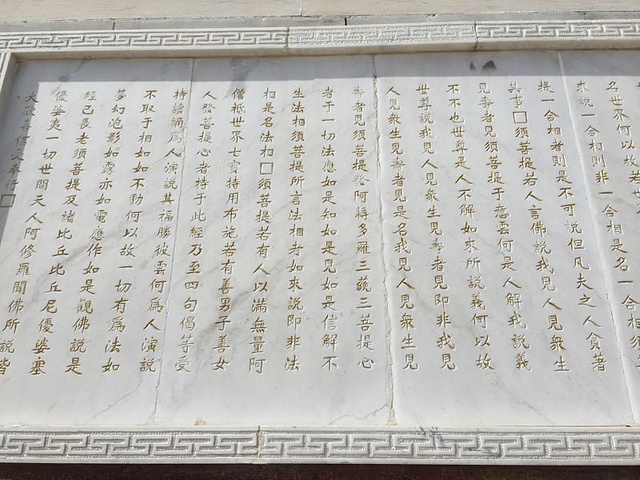 名世界何以故若世
來說一合相則非一合相是名一合相須
提一合相者則是不可說但凡夫之人貪著
其事□須菩提若人言佛說我見人見衆生
見壽者見須菩提于意云何是人解我說義
不不也世尊是人不解如來所說義何以故
世尊說我見人見衆生見壽者見即非我見
人見衆生見壽者見是名我見人見衆生見
壽者見須菩提發阿耨多羅三藐三菩提心
者于一切法應如是知如是見如是信解不
生法相須菩提所言法相者如來說即非法
相是名法相□須菩提若有人以滿無量阿
僧祇世界七寶持用布施若有善男子善女
人發菩提心者持于此經乃至四句偈等受
持讀誦爲人演說其福勝彼雲何爲人演說
不取于相如如不動何以故一切有爲法如
夢幻泡影如露亦如電應作如是觀佛說是
經已長老須菩提及諸比丘比丘尼優婆塞
優婆夷一切世間天人阿修羅聞佛所說皆
大歡喜信受奉行□